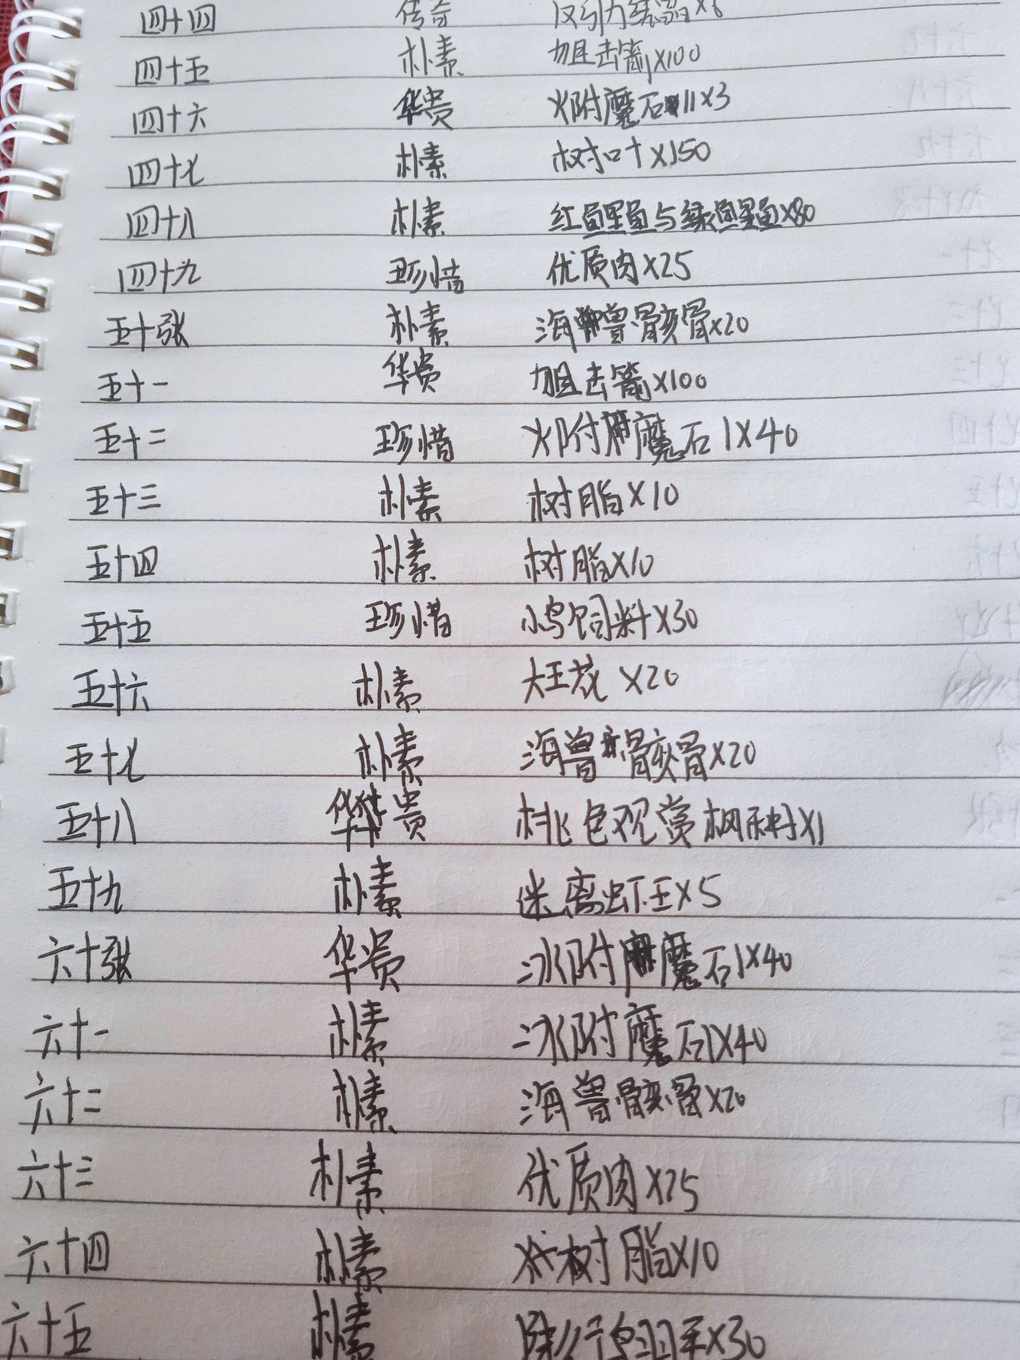 四十四 传奇 反引力结晶x6
四十五 朴素 狙击箭x100
四十六 华贵 火附魔石11x3
四十七 朴素 树叶x150
四十八 朴素 红鱼与绿鱼x80
四十九 珍惜 优质肉x25
五十张 朴素 海兽骸骨x20
五十一 华贵 狙击箭x100
五十二 珍惜 火附魔石1x40
五十三 朴素 树脂x10
五十四 朴素 树脂x10
五十五 珍惜 小鸟饲料x30
五十六 朴素 大王花x20
五十七 朴素 海兽骸骨x20
五十八 华贵 桃色观赏枫树x1
五十九 朴素 迷离虾王x5
六十张 华贵 冰附魔石1x40
六十一 朴素 冰附魔石1x40
六十二 朴素 海兽骸骨x20
六十三 朴素 优质肉x25
六十四 朴素 树脂x10
六十五 朴素 陆行鸟羽毛x30